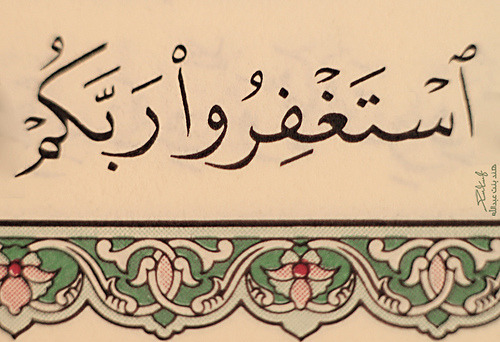 ٱسْتَغْفِرُوا۟ رَبَّكُمْ
هند بنت عبدالله